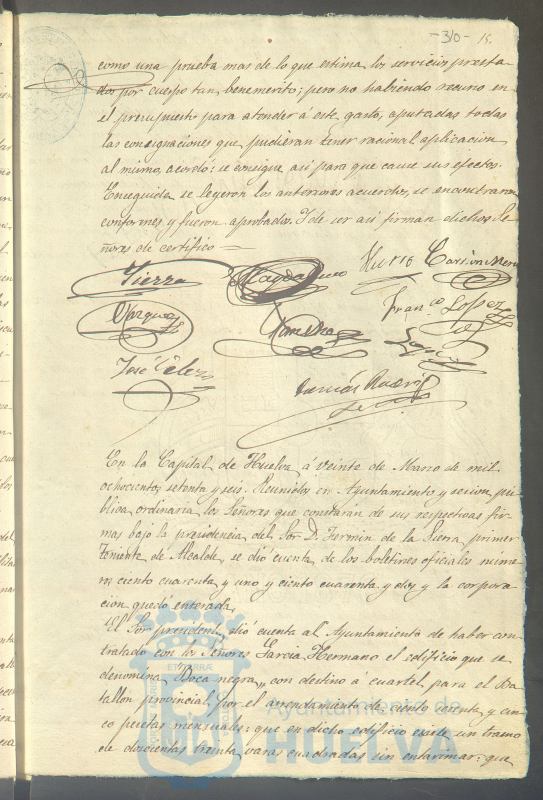 -310- 15.
como una prueba mas de lo que estima los servicios presta-
dos por cuerpo tan benemerito; pero no habiendo recurso en
el presupuesto para atender á este gasto, apuradas todas
las consignaciones que pudieran tener racional aplicacion
al mismo, acordó: se consigne así para que cause sus efectos.
Enseguida se leyeron los anteriores acuerdos, se encontraron
conformes y fueron aprobados. Y de ser así firman dichos Se-
ñores de certifico=
Sierra
Vazquez
Franco. Lopez
José
En la Capital de Huelva á veinte de Marzo de mil
ochocientos setenta y seis. Reunidos en Ayuntamiento y sesion pú-
blica ordinaria los Señores que constaran de sus respectivas fir-
mas bajo la presidencia del Sor. D. Fermin de la Sierra primer
teniente de Alcalde, se dió cuenta de los boletines oficiales núme-
ros ciento cuarenta y uno y ciento cuarenta y dos y la corpora-
cion quedó enterada.
El Sor. presidente dió cuenta al Ayuntamiento de haber con-
tratado con los Señores Garcia Hermano el edificio que se
denomina "Boca negra" con destino á cuartel, para el Ba-
tallon provincial, por el arrendamiento de ciento y cin-
co pesetas mensuales: que en dicho edificio existe un tramo
de doscientas treinta varas cuadradas sin entarimar: que
Ayuntamiento de
HUELVA